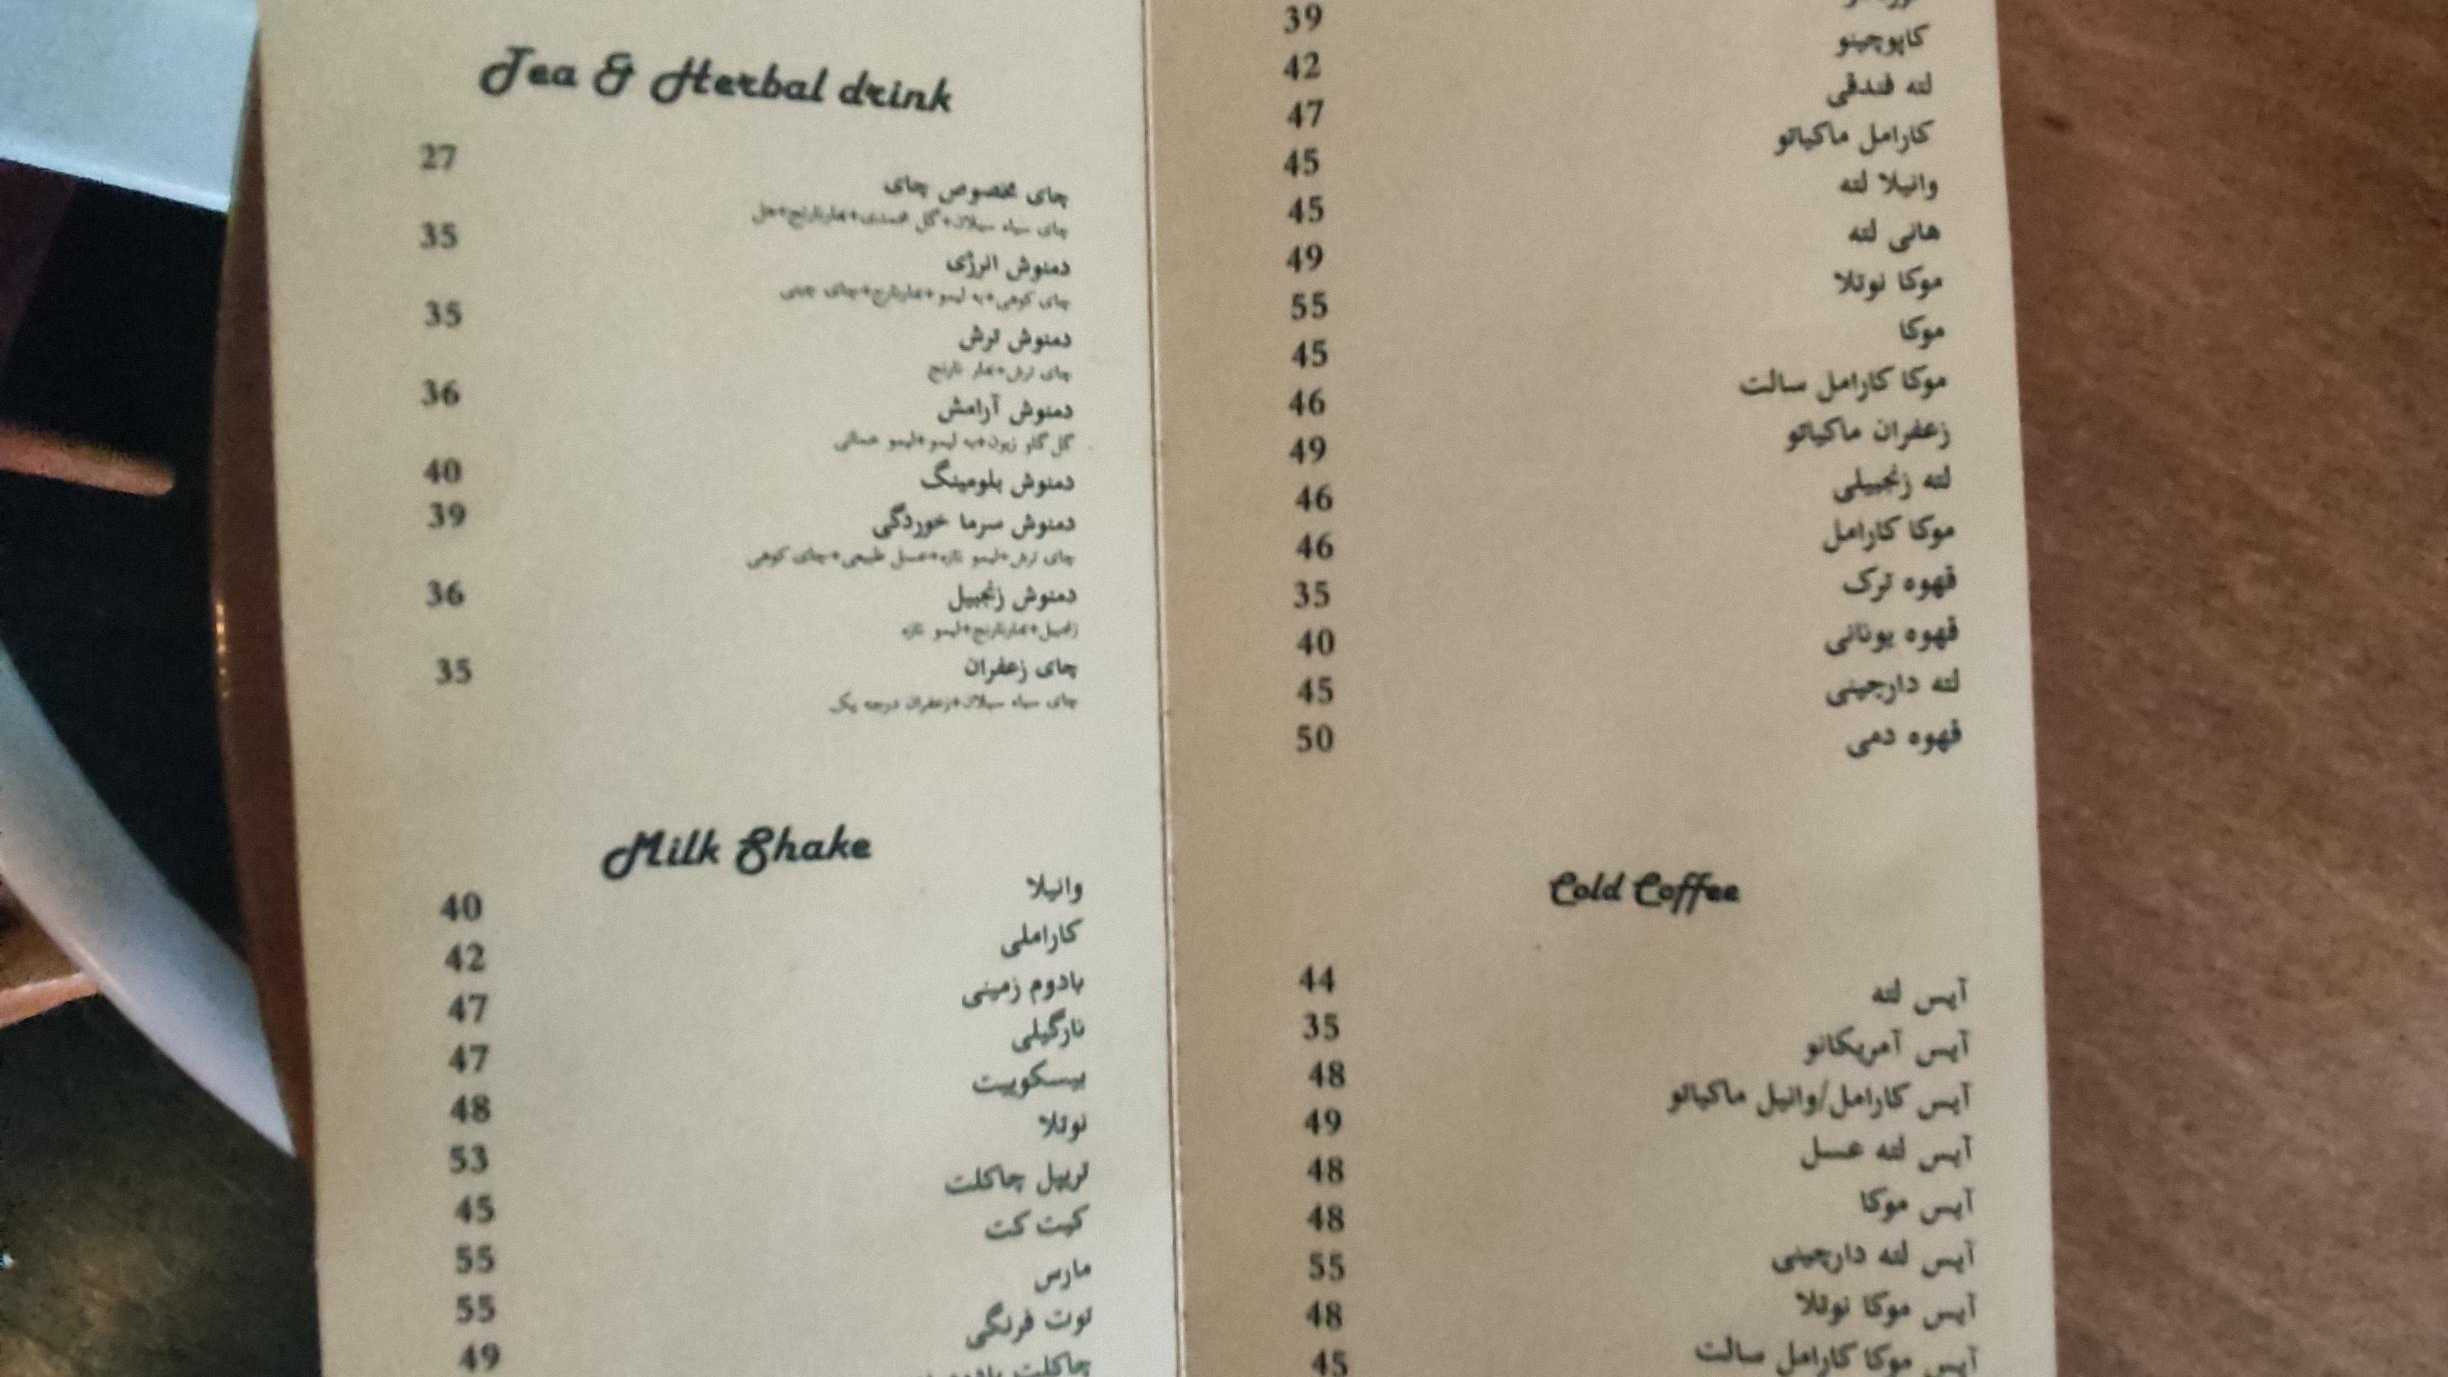 Tea & Herbal drink
27
چای مخصوص چای
چای سیاه سیلان+گل محمدی+بهارنارنج+هل
35
دمنوش انرژی
چای کوهی+به لیمو+بهارنارنج+چای چینی
35
دمنوش ترش
چای ترش+بهار نارنج
36
دمنوش آرامش
گل گاو زبون+به لیمو+لیمو عمانی
40
دمنوش بلومینگ
39
دمنوش سرما خوردگی
چای ترش+لیمو تازه+عسل طبیعی+چای کوهی
36
دمنوش زنجبیل
زنجبیل+بهارنارنج+لیمو تازه
35
چای زعفران
چای سیاه سیلان+زعفران درجه یک
Milk Shake
وانیلا
40
کاراملی
42
بادوم زمینی
47
نارگیلی
47
بیسکوییت
48
نوتلا
53
تریپل چاکلت
45
کیت کت
55
مارس
55
توت فرنگی
49
چاکلت
39
کاپوچینو
42
لته فندقی
47
کارامل ماکیاتو
45
وانیلا لته
45
هانی لته
49
موکا نوتلا
55
موکا
45
موکا کارامل سالت
46
زعفران ماکیاتو
49
لته زنجبیلی
46
موکا کارامل
46
قهوه ترک
35
قهوه یونانی
40
لته دارچینی
45
قهوه دمی
50
Cold Coffee
44
آیس لته
35
آیس آمریکانو
48
آیس کارامل/وانیل ماکیاتو
49
آیس لته عسل
48
آیس موکا
48
آیس لته دارچینی
55
آیس موکا نوتلا
48
آیس موکا کارامل سالت
45